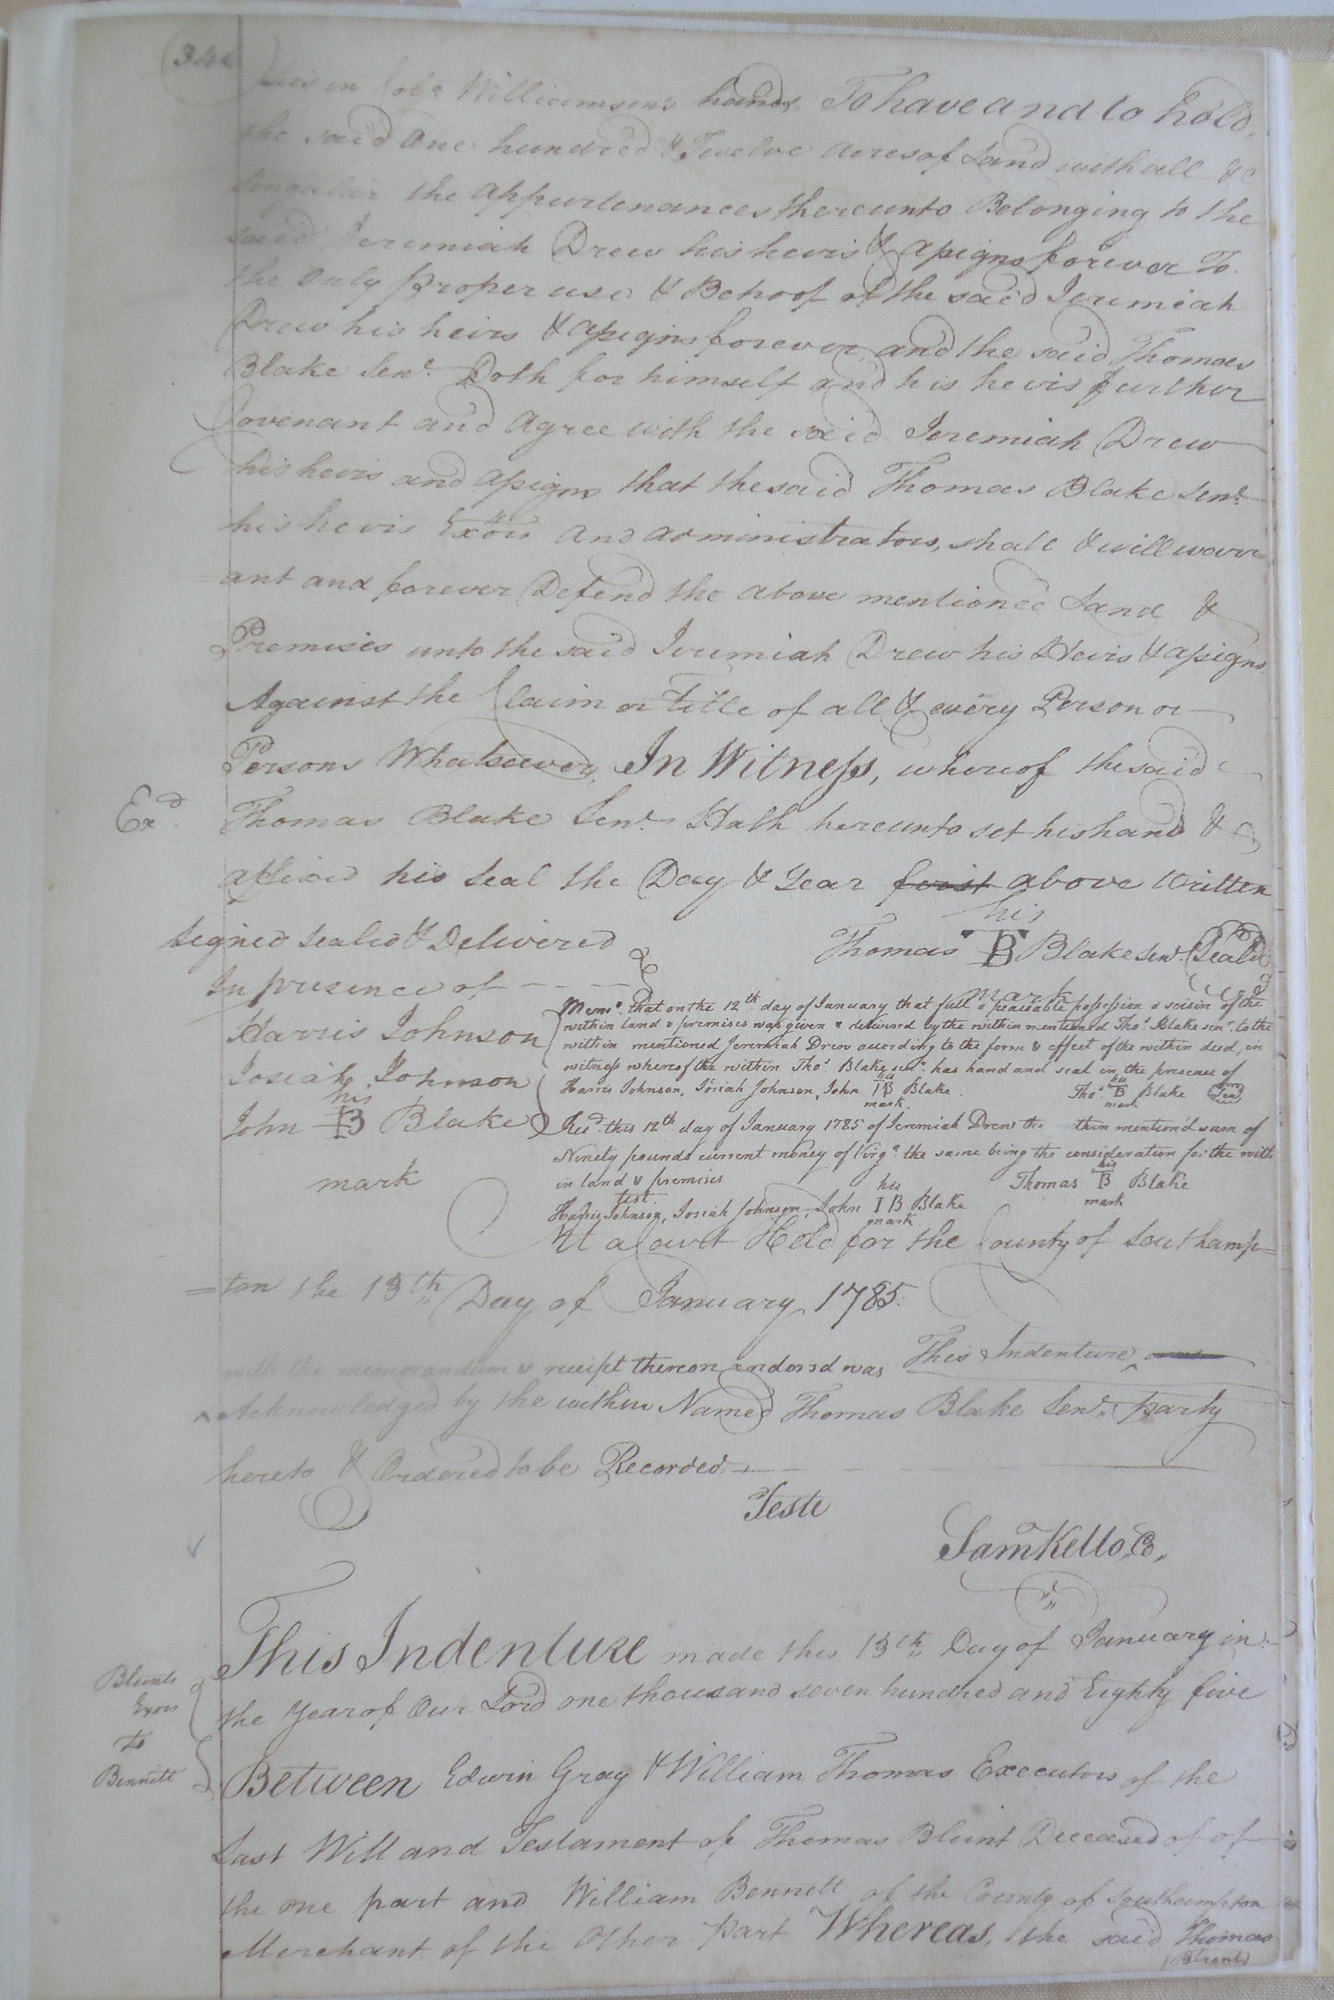 34
lies in Colo. Williamson's hands, To have and to hold,
the said One hundred & Twelve acres of Land with all &c
Singular the appurtenances thereunto Belonging to the
said Jeremiah Drew his heirs & assigns forever To.
the Only proper use & Behoof of the said Jeremiah
Drew his heirs & assigns forever, and the said Thomas
Blake Senr. Doth for himself and his heirs further
Covenant and Agree with the said Jeremiah Drew
his heirs and assigns that the said Thomas Blake Senr.
his heirs Exors and administrators, shall & will warr
ant and forever Defend the above mentioned Land &
Premises unto the said Jeremiah Drew his Heirs & assigns
Against the Claim or Title of all & every Person or
Persons Whatsoever, In Witness, whereof the said
Exd. Thomas Blake Senr. Hath hereunto set his hand &
affixed his Seal the Day & Year first above Written
Signed Sealed & Delivered
In presence of
his
Thomas B Blake Senr. Seald
mark
Harris Johnson
Josiah Johnson
his
John IB Blake
mark
Memo. that on the 12th day of January that full & peaceable possession & seisin of the
within land & premises was given & delivered by the within mentioned Thos. Blake senr. to the
within mentioned Jeremiah Drew according to the form & effect of the within deed, in
witness whereof the within Thos. Blake senr. has hand and seal in the presence of
Harris Johnson, Josiah Johnson, John his IB mark Blake. Thos. his B mark Blake Seal
Recd. this 12th day of January 1785 of Jeremiah Drew the thin mention'd sum of
Ninety pounds current money of Virga. the same being the consideration for the with
in land & premises Thomas his B mark Blake
Test.
Harris Johnson, Josiah Johnson, John his I B mark Blake
At a Court Held for the County of Southamp=
=ton the 13th Day of January 1785.
with the memorandum & receipt thereon endorsd was This Indenture was
Acknowledged by the within Named Thomas Blake Senr. party
hereto & Ordered to be Recorded.
Teste
Saml Kello, C
This Indenture made this 13th Day of January in
the Year of Our Lord one thousand seven hundred and Eighty five
Blunts
Exors
To
Bennett
Between Edwin Gray & William Thomas Executors of the
Last Will and Testament of Thomas Blunt Deceased of of
the one part and William Bennett of the County of Southampton
Merchant of the Other part Whereas, the said Thomas
(Blunt)